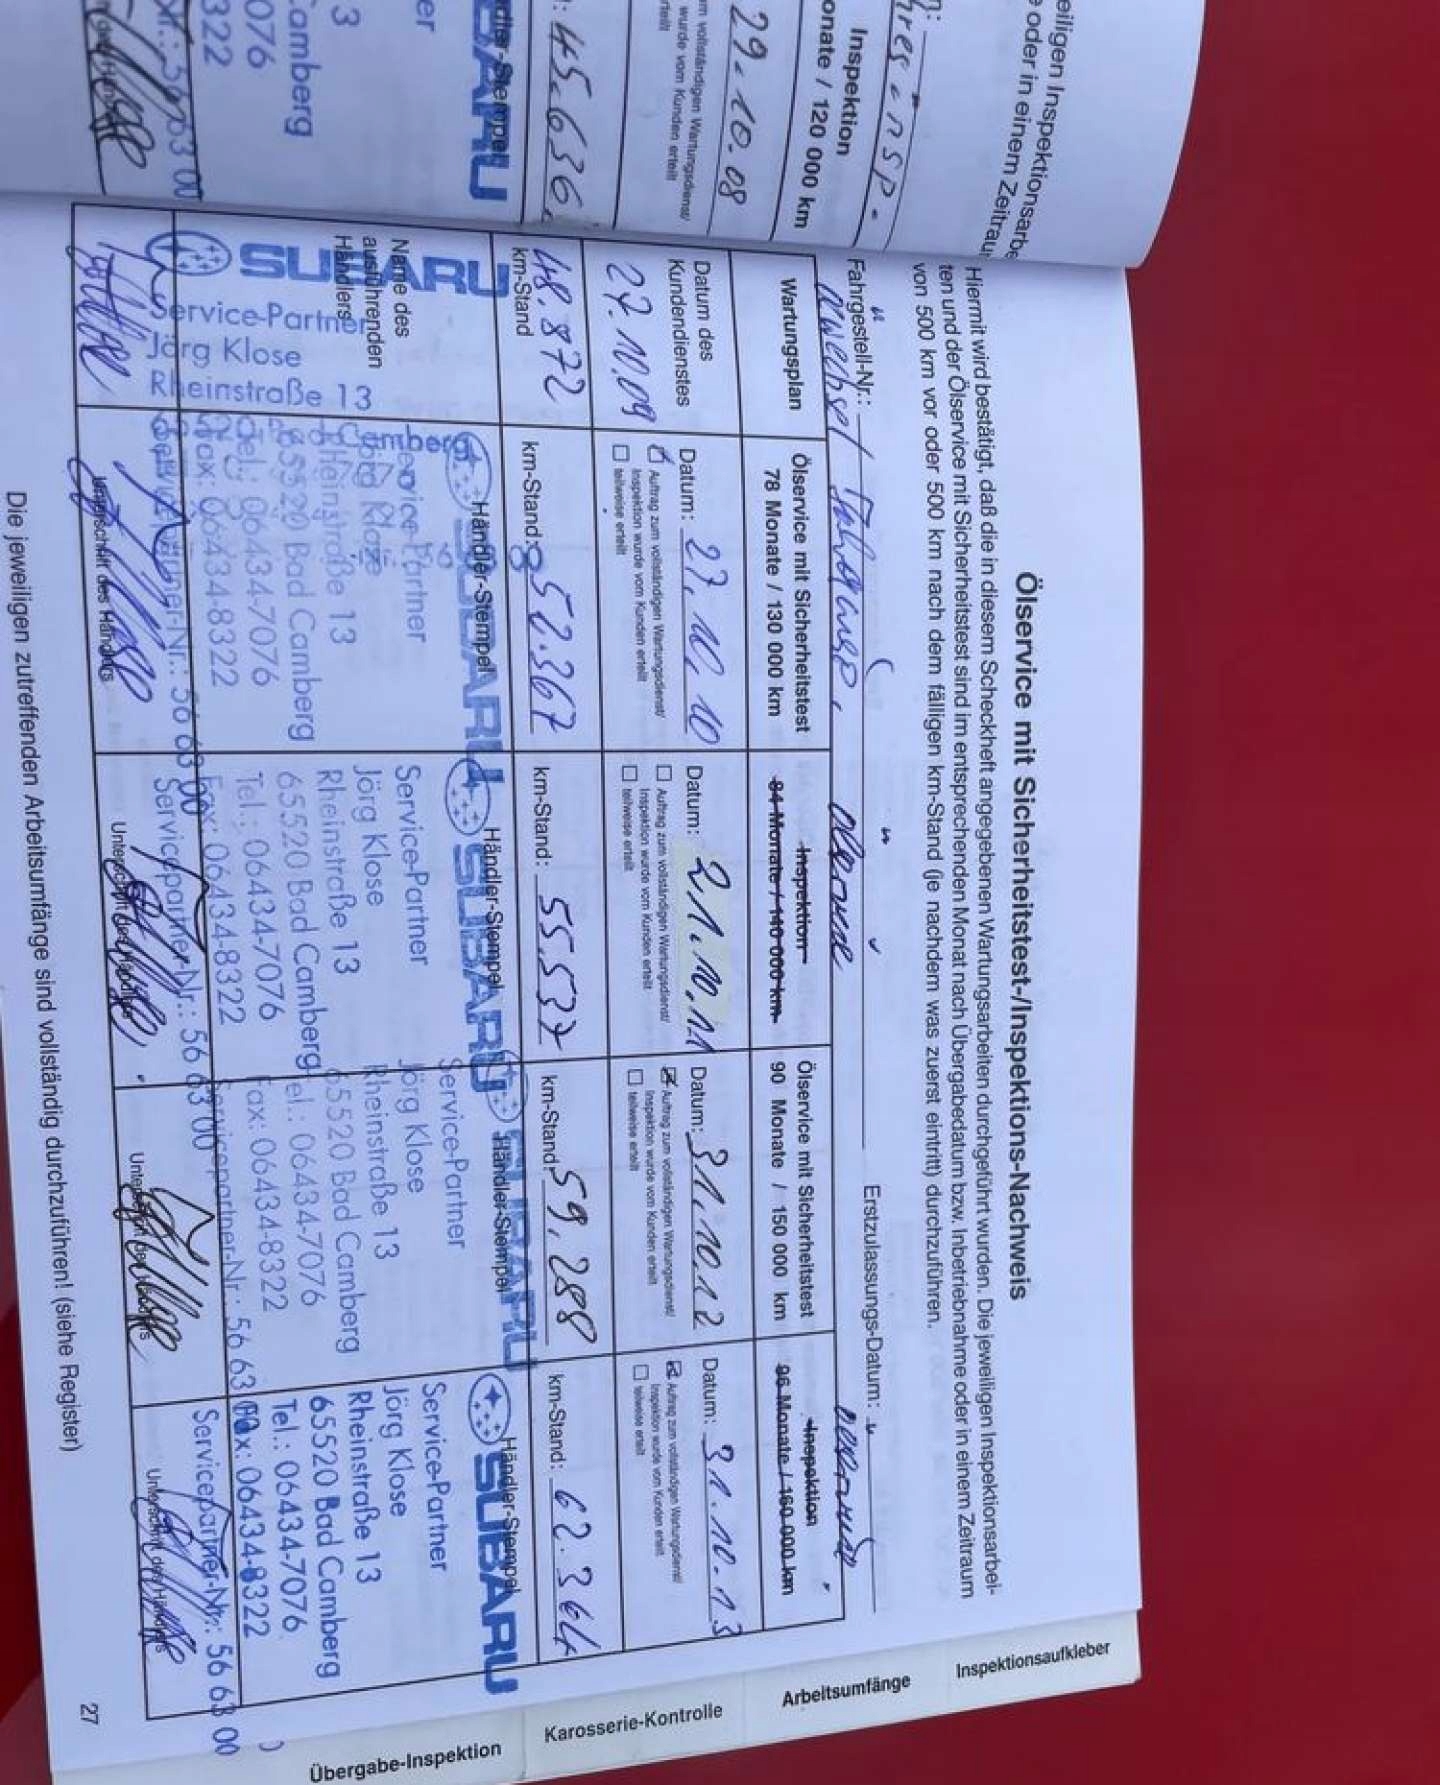 eiligen Inspektionsarbe
oder in einem Zeitrau
Inspektion
onate / 120 000 km
29.10.08
m vollständigen Wartungsdienst/
wurde vom Kunden erteilt
erteilt
45.636
BARU
er
3
Camberg
076
322
Ölservice mit Sicherheitstest-/Inspektions-Nachweis
Hiermit wird bestätigt, daß die in diesem Scheckheft angegebenen Wartungsarbeiten durchgeführt wurden. Die jeweiligen Inspektionsarbei-
ten und der Ölservice mit Sicherheitstest sind im entsprechenden Monat nach Übergabedatum bzw. Inbetriebnahme oder in einem Zeitraum
von 500 km vor oder 500 km nach dem fälligen km-Stand (je nachdem was zuerst eintritt) durchzuführen.
Fahrgestell-Nr.:
Erstzulassungs-Datum:
Wartungsplan
Ölservice mit Sicherheitstest
78 Monate / 130 000 km
Inspektion
84 Monate / 140 000 km
Ölservice mit Sicherheitstest
90 Monate / 150 000 km
Inspektion
96 Monate / 160 000 km
Datum des
Kundendienstes
27.10.09
Datum: 27.10.10
Auftrag zum vollständigen Wartungsdienst/
Inspektion wurde vom Kunden erteilt
teilweise erteilt
Datum: 21.10.11
Auftrag zum vollständigen Wartungsdienst/
Inspektion wurde vom Kunden erteilt
teilweise erteilt
Datum: 31.10.12
Auftrag zum vollständigen Wartungsdienst/
Inspektion wurde vom Kunden erteilt
teilweise erteilt
Datum: 31.10.13
Auftrag zum vollständigen Wartungsdienst/
Inspektion wurde vom Kunden erteilt
teilweise erteilt
48.872
km-Stand
km-Stand: 52.367
km-Stand: 55.537
km-Stand: 59.288
km-Stand: 62.364
Name des
ausführenden
Händlers
SUBARU
Service-Partner
Jörg Klose
Rheinstraße 13
Händler-Stempel
SUBARU
Service-Partner
Jörg Klose
Rheinstraße 13
65520 Bad Camberg
Tel.: 06434-7076
Fax: 06434-8322
Servicepartner-Nr.: 56 63 00
Unterschrift des Händlers
Händler-Stempel
SUBARU
Service-Partner
Jörg Klose
Rheinstraße 13
65520 Bad Camberg
Tel.: 06434-7076
Fax: 06434-8322
Servicepartner-Nr.: 56 63 00
Unterschrift des Händlers
Händler-Stempel
SUBARU
Service-Partner
Jörg Klose
Rheinstraße 13
65520 Bad Camberg
Tel.: 06434-7076
Fax: 06434-8322
Servicepartner-Nr.: 56 63 00
Unterschrift des Händlers
Händler-Stempel
SUBARU
Service-Partner
Jörg Klose
Rheinstraße 13
65520 Bad Camberg
Tel.: 06434-7076
Fax: 06434-8322
Servicepartner-Nr.: 56 63 00
Unterschrift des Händlers
Die jeweiligen zutreffenden Arbeitsumfänge sind vollständig durchzuführen! (siehe Register)
27
Inspektionsaufkleber
Arbeitsumfänge
Karosserie-Kontrolle
Übergabe-Inspektion